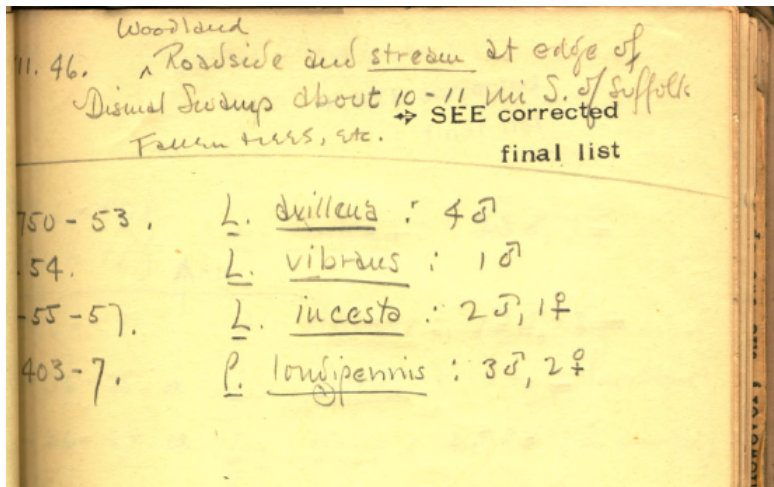 Woodland
11. 46. ^ Roadside and stream at edge of
Dismal Swamp about 10-11 mi S. of Suffolk
→ SEE corrected
Fallen trees, etc.
final list
750-53. L. axillena : 4♂
54. L. vibrans : 1♂
-55-57. L. incesta : 2♂, 1♀
403-7. P. longipennis : 3♂, 2♀